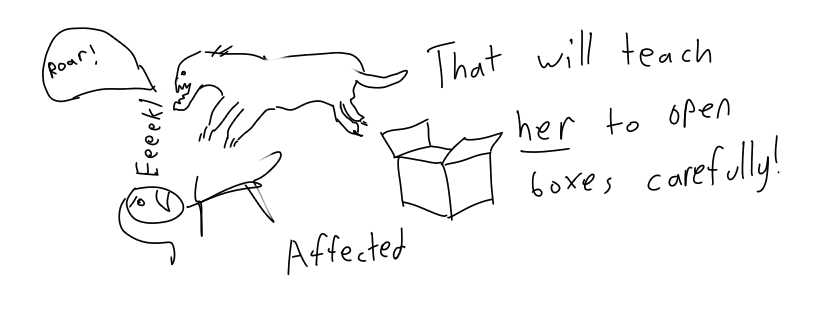 Roar!
Eeeek!
That will teach
her to open
boxes carefully!
Affected